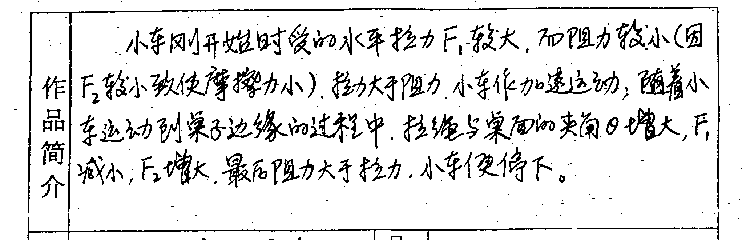 作品简介
小车刚开始时受的水平拉力F₁较大,而阻力较小(因
F₂较小致使摩擦力小).拉力大于阻力.小车作加速运动;随着小
车运动到桌子边缘的过程中.拉绳与桌面的夹角θ增大,F₁
减小,F₂增大.最后阻力大于拉力.小车便停下。